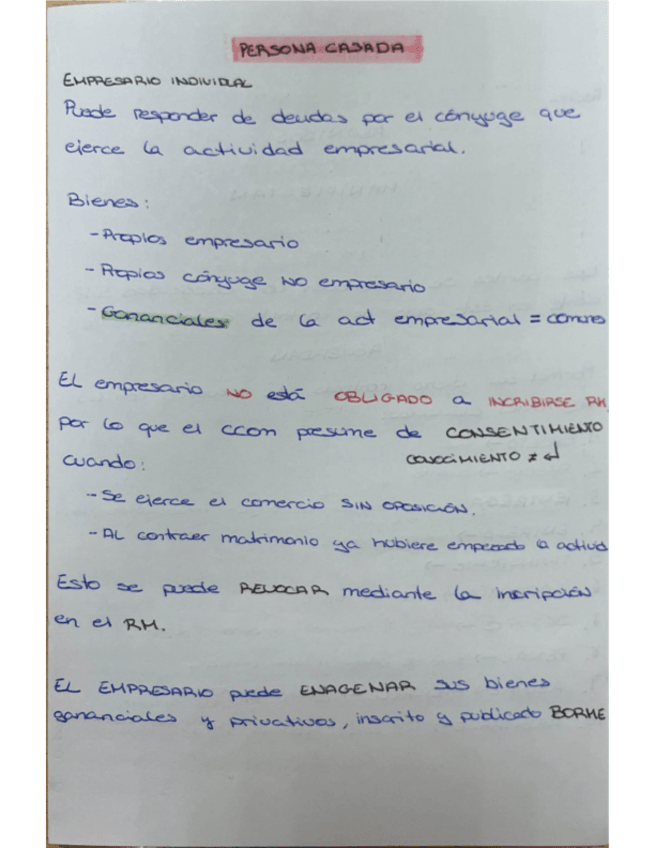 PERSONA CASADA
EMPRESARIO INDIVIDUAL
Puede responder de deudas por el cónyuge que
ejerce la actividad empresarial.
Bienes:
- Propios empresario
- Propios cónyuge NO empresario
- Gananciales de la act empresarial = comunes
EL empresario NO está OBLIGADO a INCRIBIRSE RM,
por lo que el CCOM presume de CONSENTIMIENTO
cuando: CONOCIMIENTO ≠ ↲
- Se ejerce el comercio SIN OPOSICIÓN.
- AL contraer matrimonio ya hubiere empezado la activid
Esto se puede REVOCAR mediante la incripción
en el RM.
EL EMPRESARIO puede ENAGENAR sus bienes
gananciales y privativos, inscrito y publicado BORME